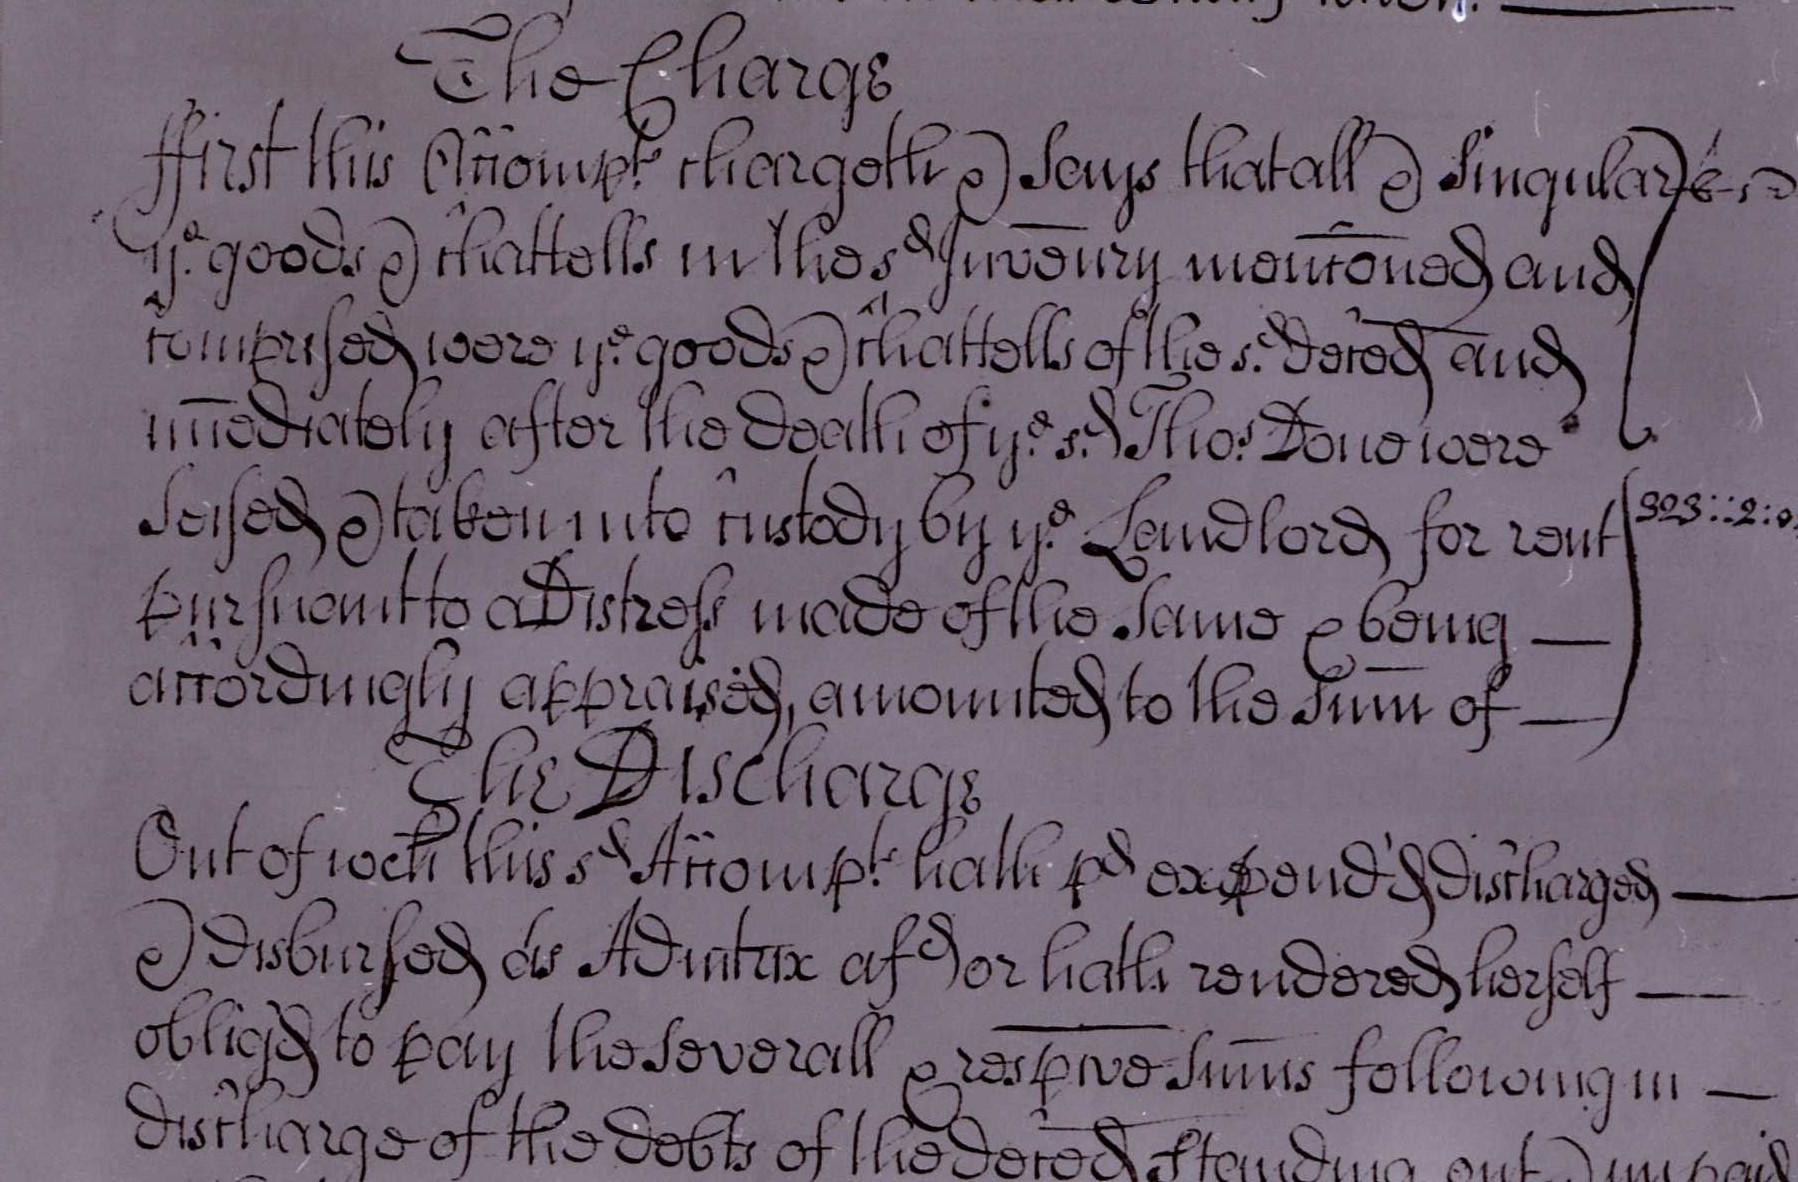 The Charge
ffirst this Accompt. chargeth & Says that all & Singular
ye. goods & chattells in the sd Invenry menconed and
comprised were ye. goods & chattells of the s.d deced and
imediately after the death of ye. s.d Thos. Done were
Seised & taken into custody by ye. Landlord for rent 303::2:0
pursuant to a Distress made of the Same & being —
accordingly appraised, amounted to the Sum of —
The Discharge
Out of wch this sd Accompt. hath pd expend'd discharged —
& disbursed as Admtrix afd or hath rendered herself —
oblig'd to pay the Severall & respive Sums following in —
discharge of the debts of the deced Standing out & unpaid